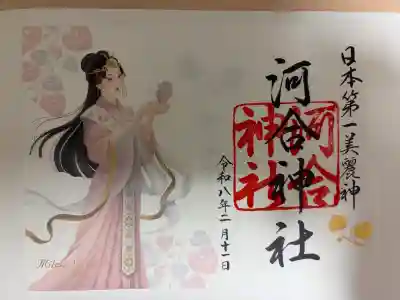 日本第一美麗神
河合神社
河合神社
令和八年二月十一日